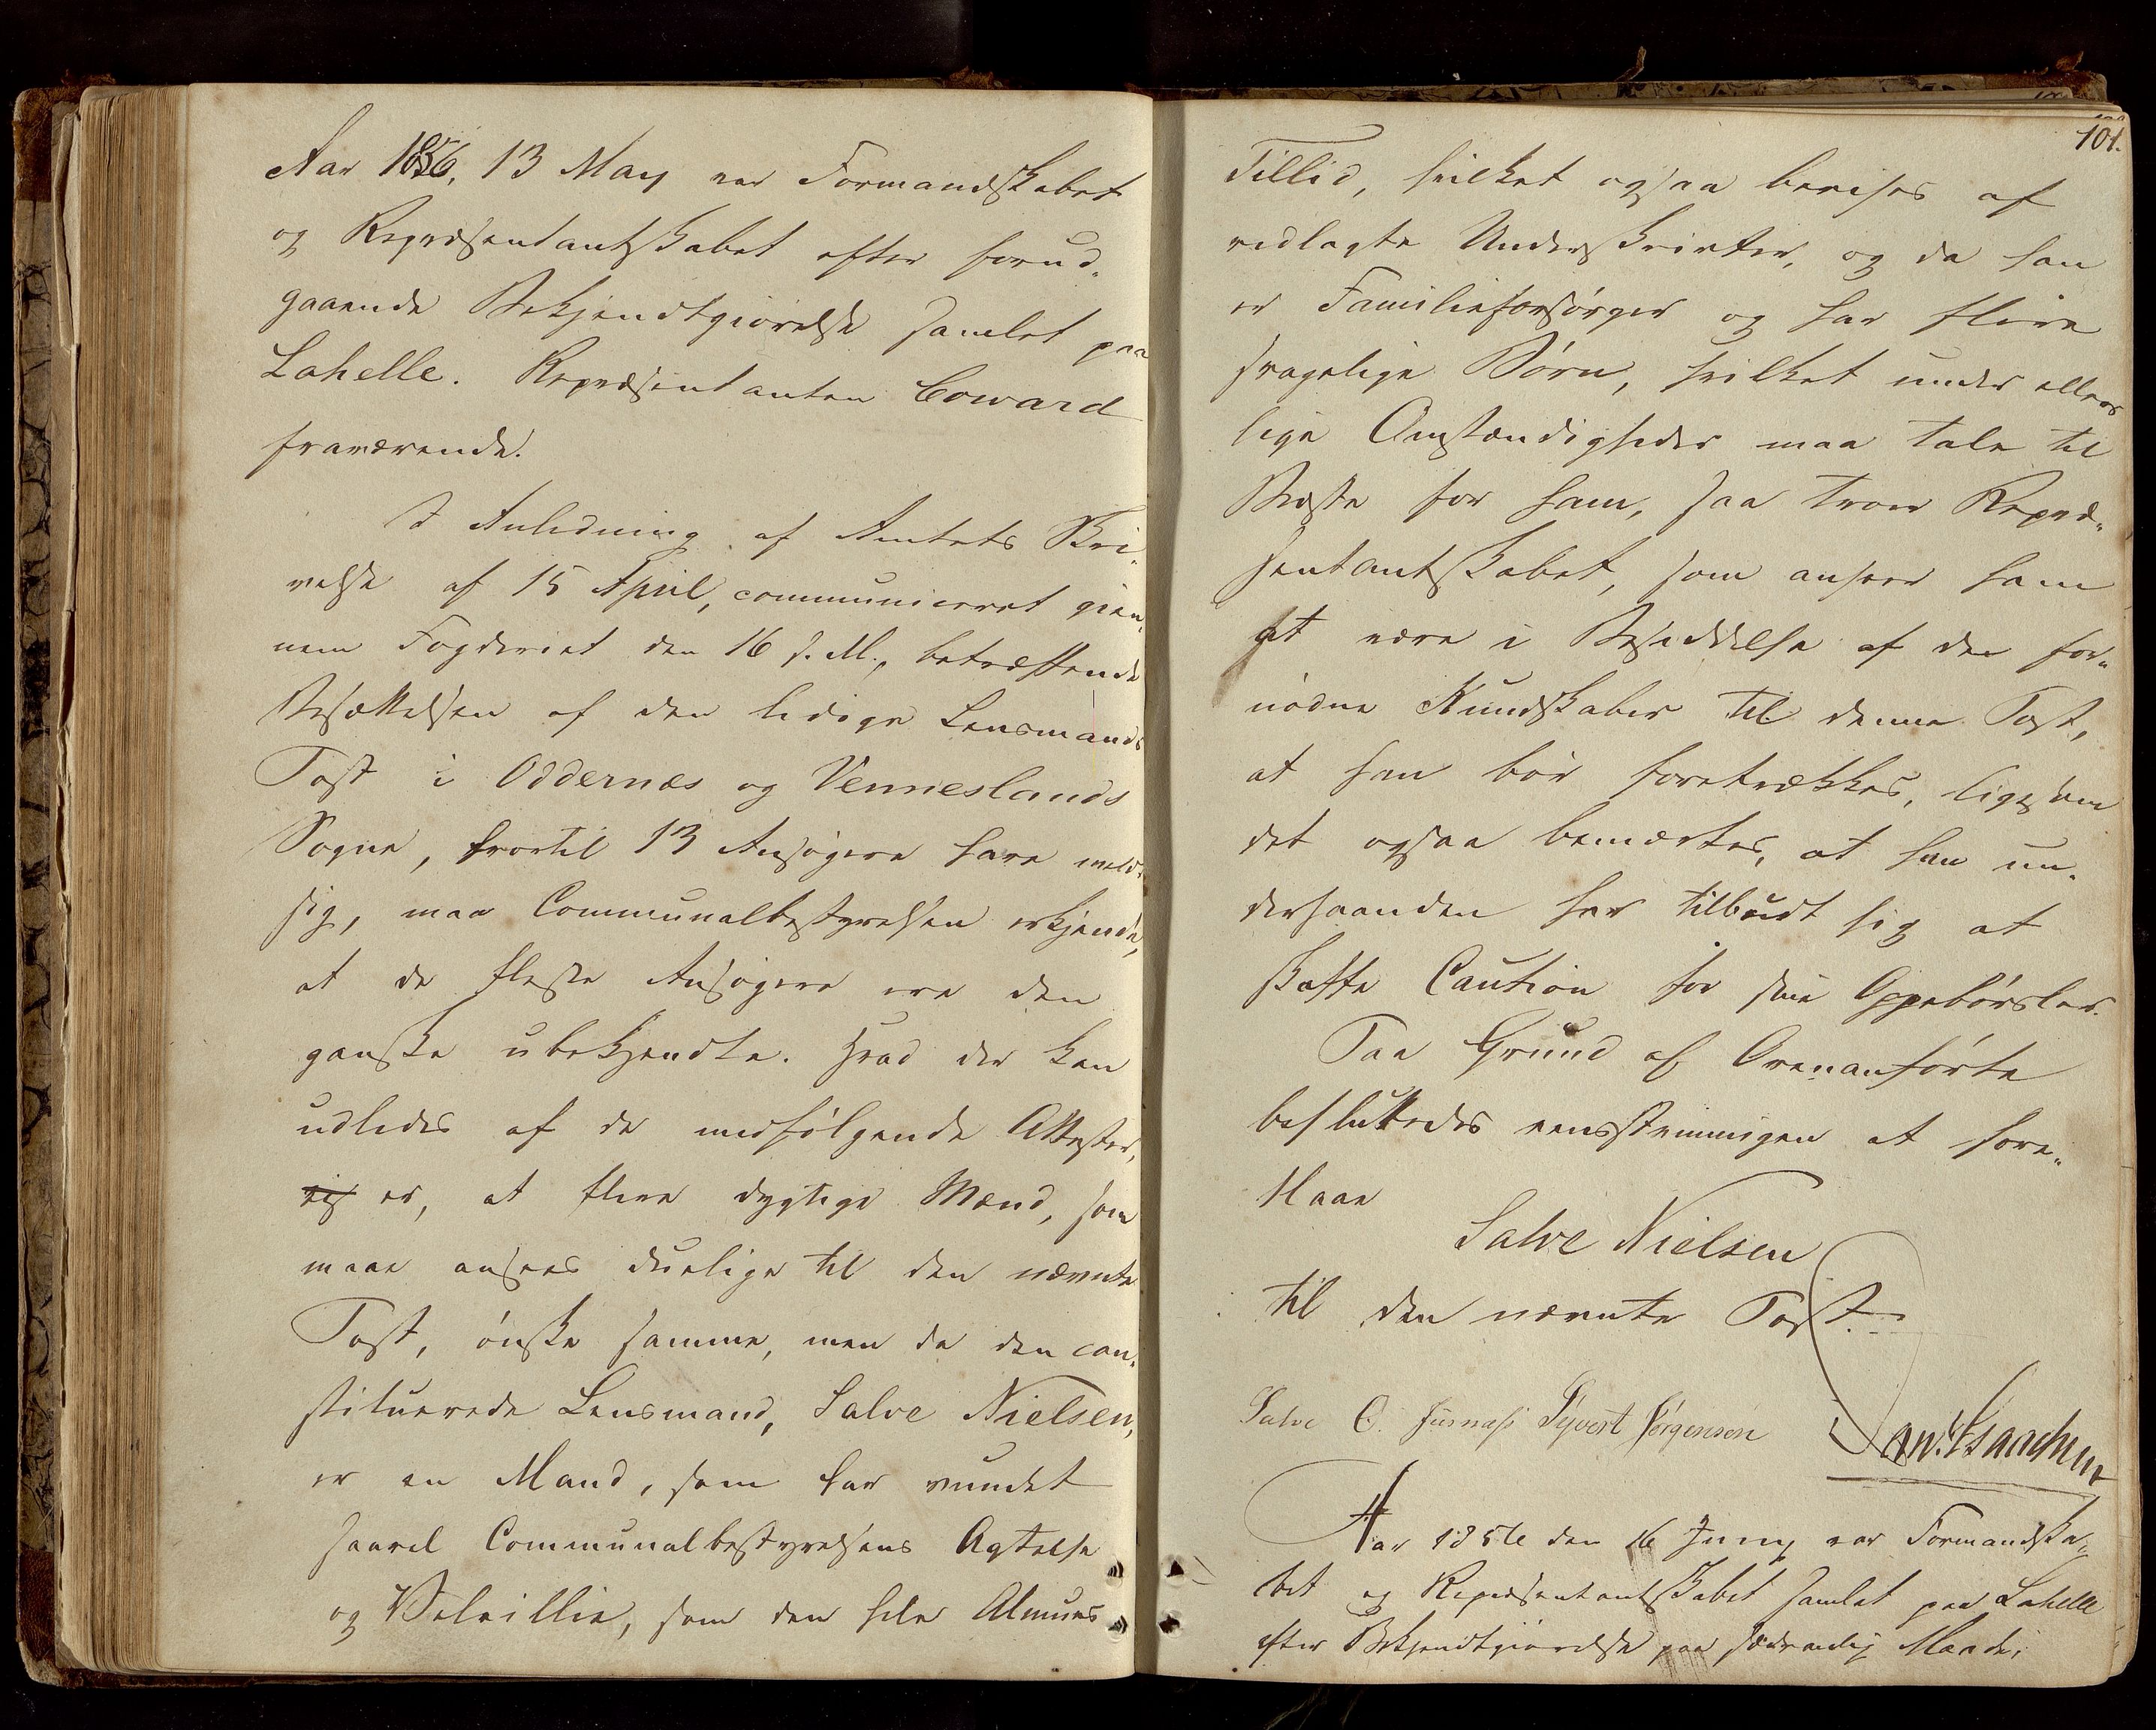 Aar 1856, 13 May var Formandskabet
og Repræsentantskabet efter forud„
gaaende Bekjendtgiørelse samlet paa
Lahelle. Repræsentanten Coward
fraværende.
I Anledning af Amtets Skri„
velse af 15 April, communiceret gien„
nem Fogderiet den 16 s. M., betræffende
Besættelsen af den ledige Lensmands
Post i Oddernæs og Venneslands
Sogne, hvortil 13 Ansøgere have meldt
sig, maa Communalbestyrelsen erkjende,
at de fleste Ansøgere ere den
ganske ubekjendte. Hvad der kan
udledes af de medfølgende Attester,
er, at flere dygtige Mænd, som
maae ansees duelige til den nævnte
Post, ønske samme, men da den con„
stituerede Lensmand, Salve Nielsen,
er en Mand, som har vundet
saavel Communalbestyrelsens Agtelse
og Velvillie, som den hele Almues
101.
Tillid, hvilket ogsaa bevises af
vedlagte Underskrivter, og da han
er Familieforsørger og har flere
svagelige Børn, hvilket under ellers
lige Omstændigheder maa tale til
Bedste for ham, saa troer Repræ„
sentantskabet, som anseer ham
at være i Besiddelse af de for„
nødne Kundskaber til denne Post,
at han bør foretrækkes, ligesom
det ogsaa bemærkes, at han un„
derhaanden har tilbudt sig at
skaffe Caution for sine Oppebørsler.
Paa Grund af Ovenanførte
besluttedes eensstemmigen at fore„
slaae
Salve Nielsen
til den nævnte Post.
Salve O. Jusnæs Syvert Jørgensen
Dan. Isaachsen
Aar 1856 den 16 Juny var Formandska„
bet og Repræsentantskabet samlet paa Lahelle
efter Bekjendtgiørelse paa sædvanlig Maade,